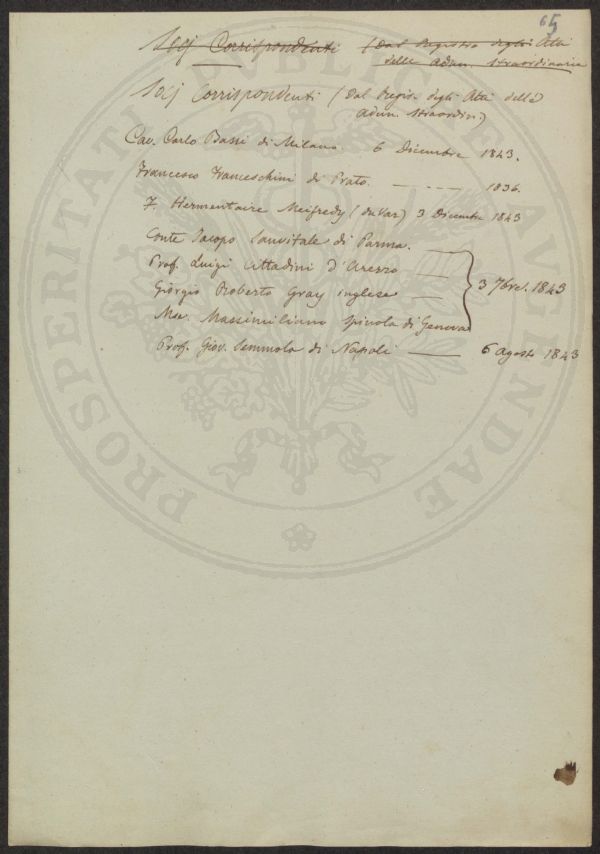 65
Socj Corrispondenti (Dal Registro degli Atti
delle adun. straordinarie
Socj Corrispondenti (Dal Regis. degli Atti delle
adun. straordin.)
Cav. Carlo Bassi di Milano. 6 Dicembre 1843.
Francesco Franceschini di Prato. - - - - 1836.
F. Hermentaire Meifredy (du Var) 3 Dicembre 1843
Conte Jacopo Sanvitale di Parma. —
Prof. Luigi Cittadini d'Arezzo —
Giorgio Roberto Gray inglese —
3 7bre. 1843
Mse. Massimiliano Spinola di Genova
Prof. Giov. Semmola di Napoli — 6 Agosto 1843
PROSPERITATI PUBLICAE AUGENDAE